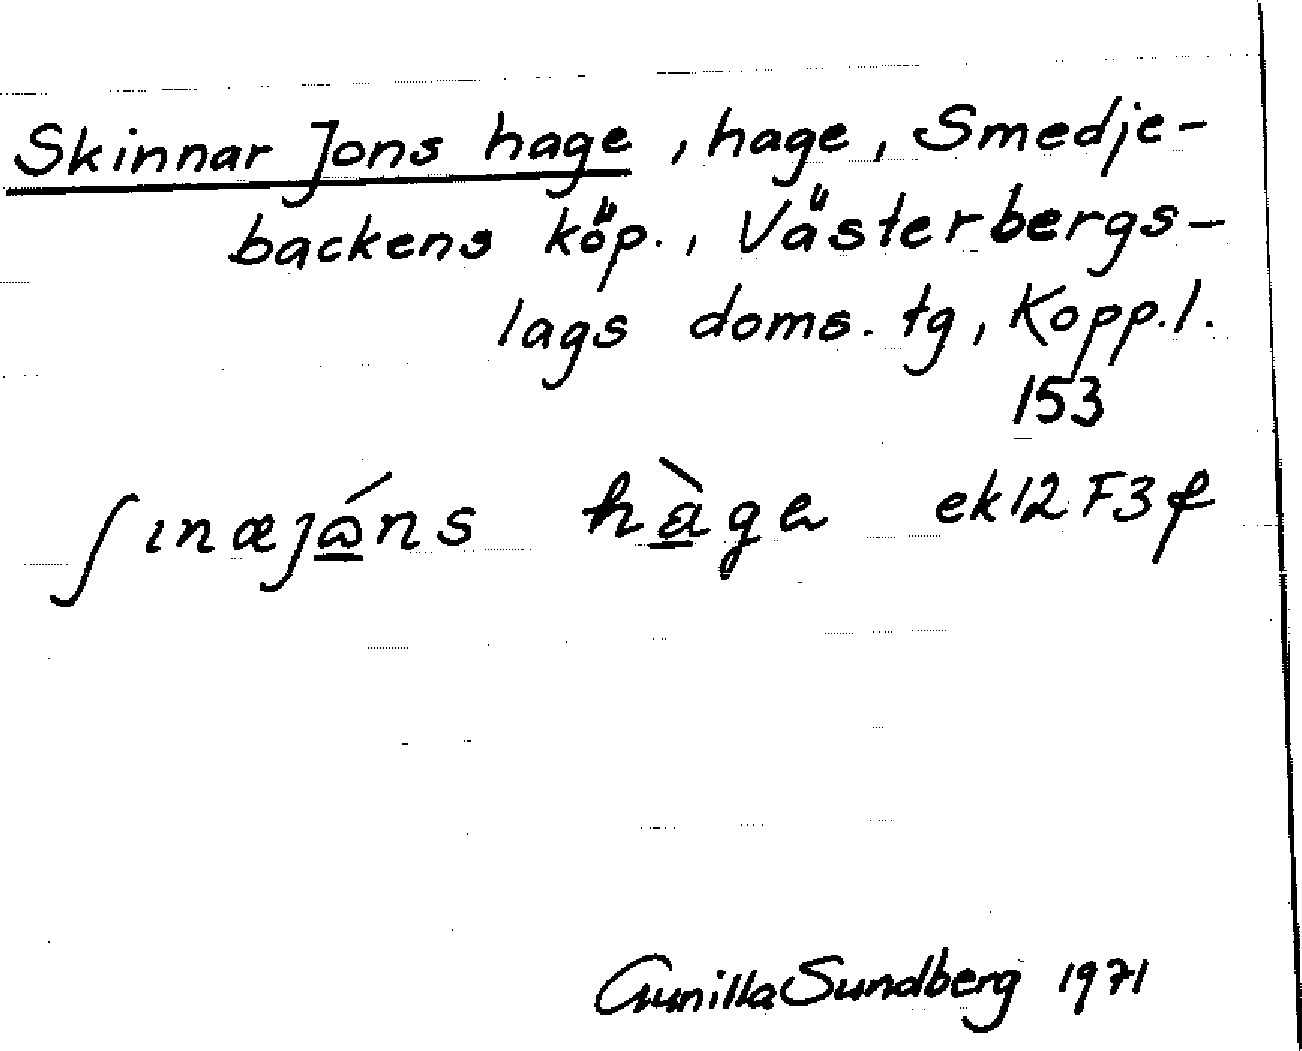 Skinnar Jons hage, hage, Smedje-
backens köp., Västerbergs-
lags doms. tg, Kopp.l.
153
ʃınæȷá̲ns hà̲ge ek12F3f
Gunilla Sundberg 1971